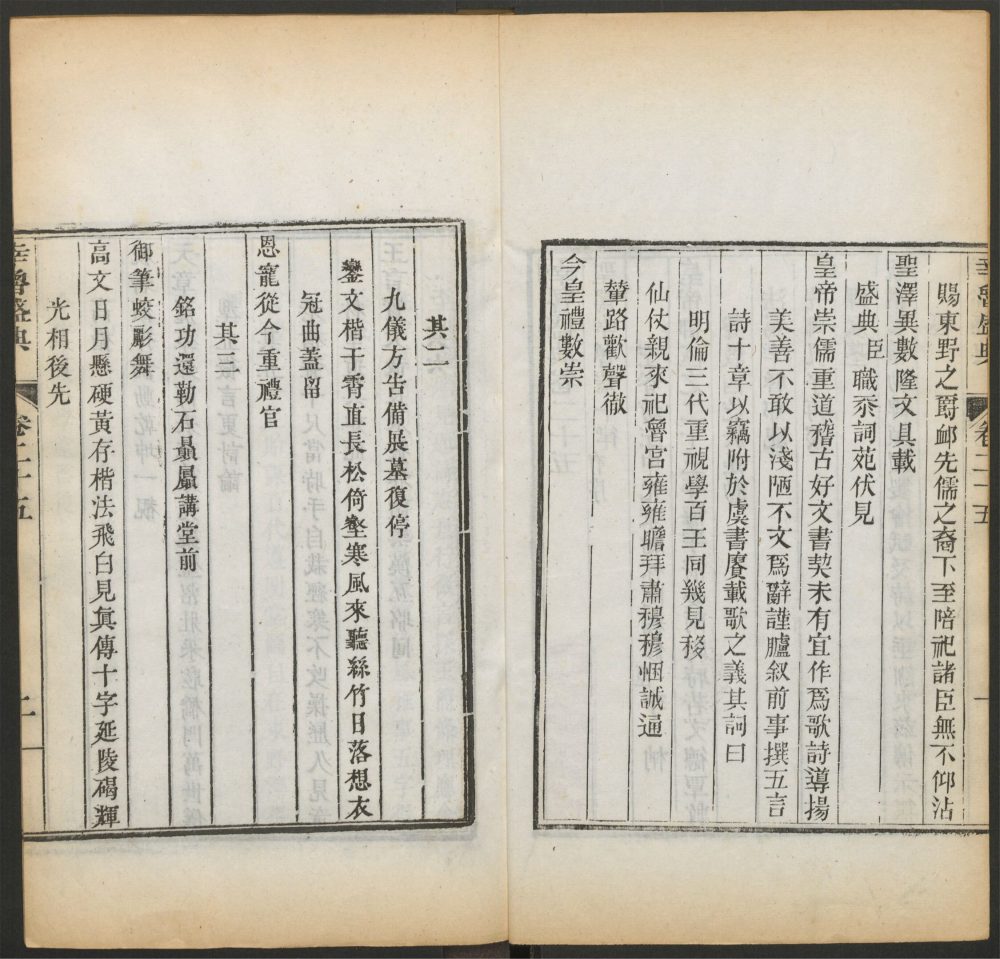 幸魯盛典 卷二十五 一
賜東野之爵卹先儒之裔下至陪祀諸臣無不仰沾
聖澤異數隆文具載
盛典臣職忝詞苑伏見
皇帝崇儒重道稽古好文書契未有宜作爲歌詩導揚
美善不敢以淺陋不文爲辭謹臚叙前事撰五言
詩十章以竊附於虞書賡載歌之義其詞曰
明倫三代重視學百王同幾見移
仙仗親來祀魯宮雍雍瞻拜肅穆穆悃誠通
輦路歡聲徹
今皇禮數崇
其二
九儀方告備展墓復停
鑾文楷干霄直長松倚壑寒風來聽絲竹日落想衣
冠曲蓋留
恩寵從今重禮官
其三
銘功還勒石贔屭講堂前
御筆蛟彪舞
高文日月懸硬黃存楷法飛白見眞傳十字延陵碣輝
光相後先
幸魯盛典 卷二十五 二